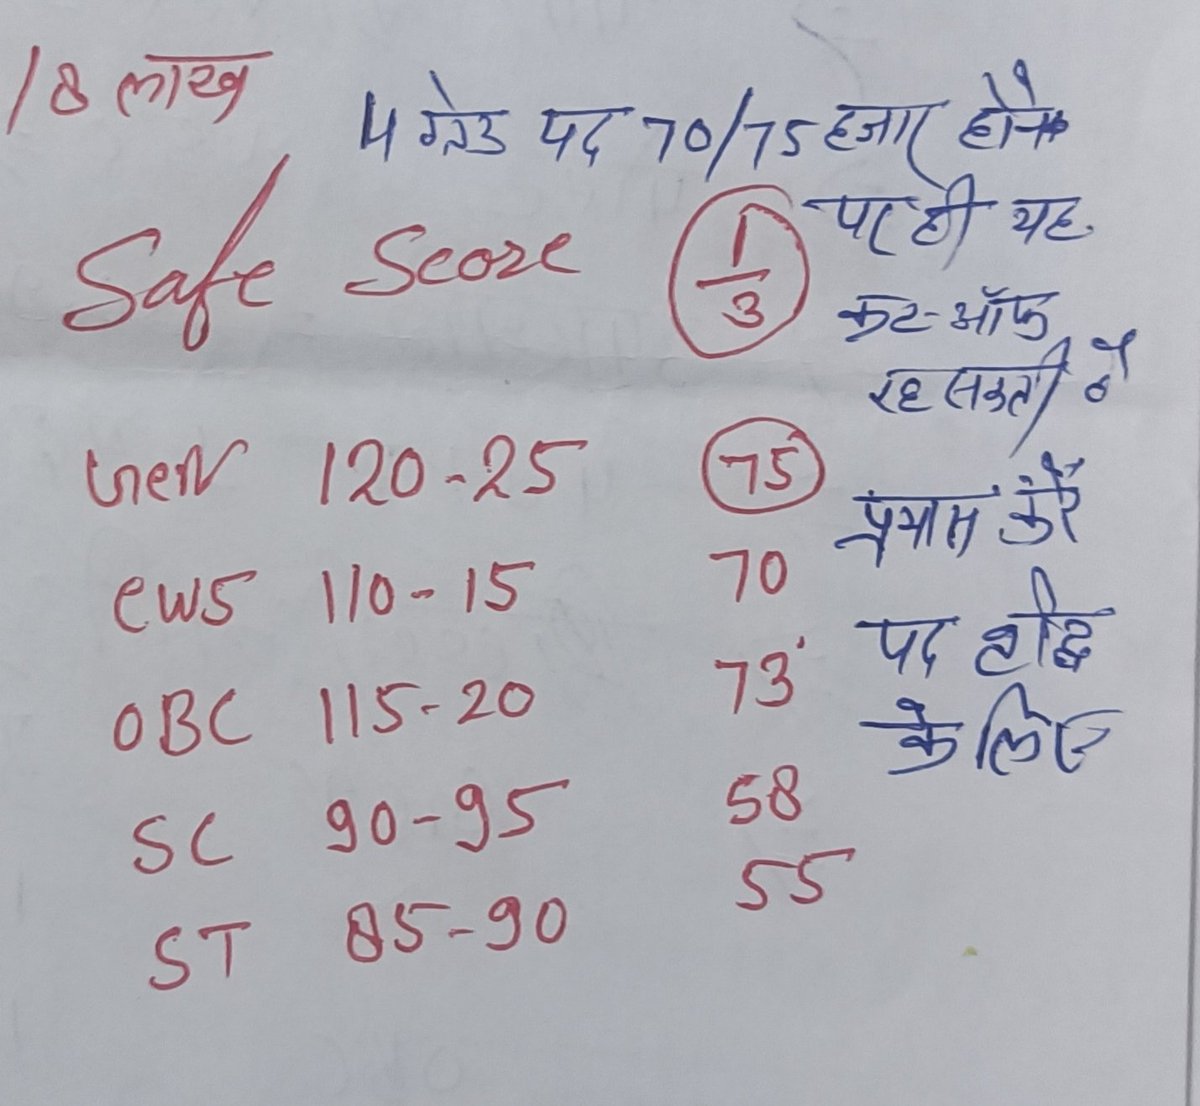 18 लाख
4 ग्रेड पद 70/75 हजार होने
पर ही यह
कट-ऑफ
रह सकती है
प्रयास करें
पद वृद्धि
के लिए
Safe Score 1/3
Gen 120-25 75
EWS 110-15 70
OBC 115-20 73
SC 90-95 58
ST 85-90 55